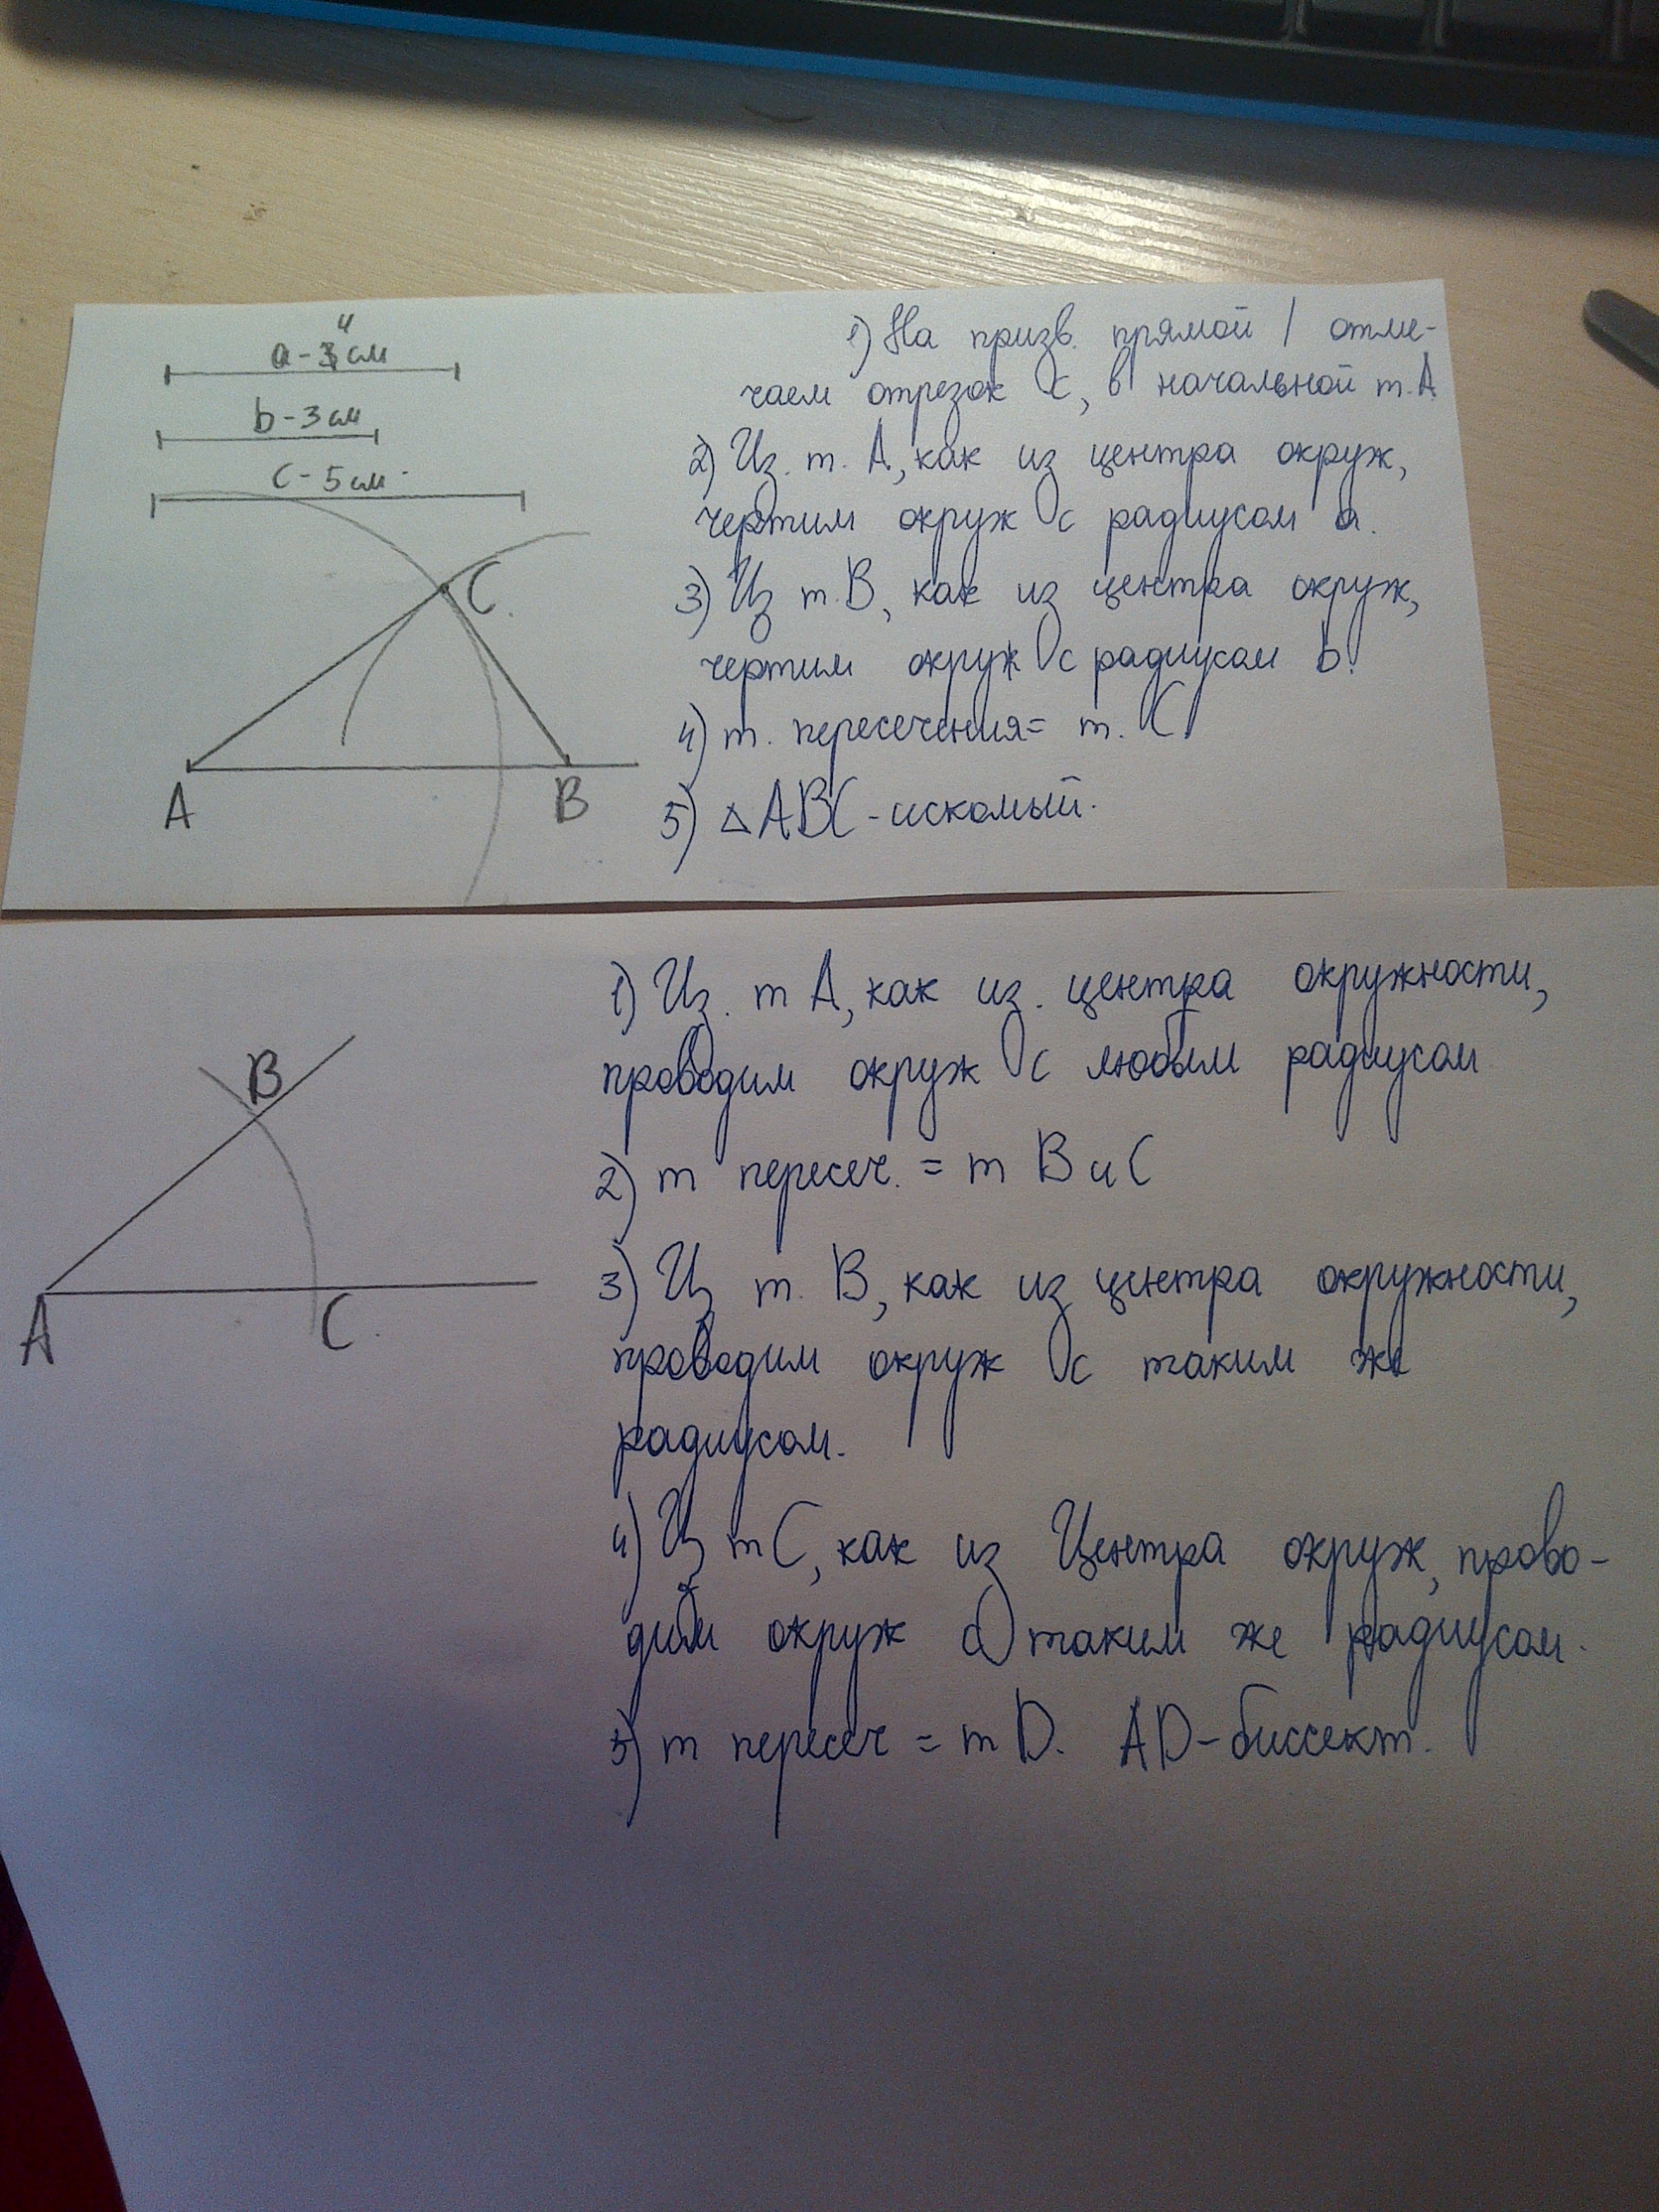 4
a-3см
b-3см
c-5см.
C.
A
B
1) На призв. прямой / отме-
чаем отрезок с, в начальной т.А
2) Из. т. А, как из центра окруж,
чертим окруж с радиусом а.
3) Из т.В, как из центра окруж,
чертим окруж с радиусом b.
4) т. пересечения= т. С
5) △ABC-искомый.
B
A
C.
1) Из. т А, как из. центра окружности,
проводим окруж с любым радиусом
2) т пересеч. = т В и С
3) Из т. В, как из центра окружности,
проводим окруж с таким же
радиусом.
4) Из т С, как из Центра окруж, прово-
дим окруж с таким же радиусом.
5) т пересеч = т D. AD-биссект.